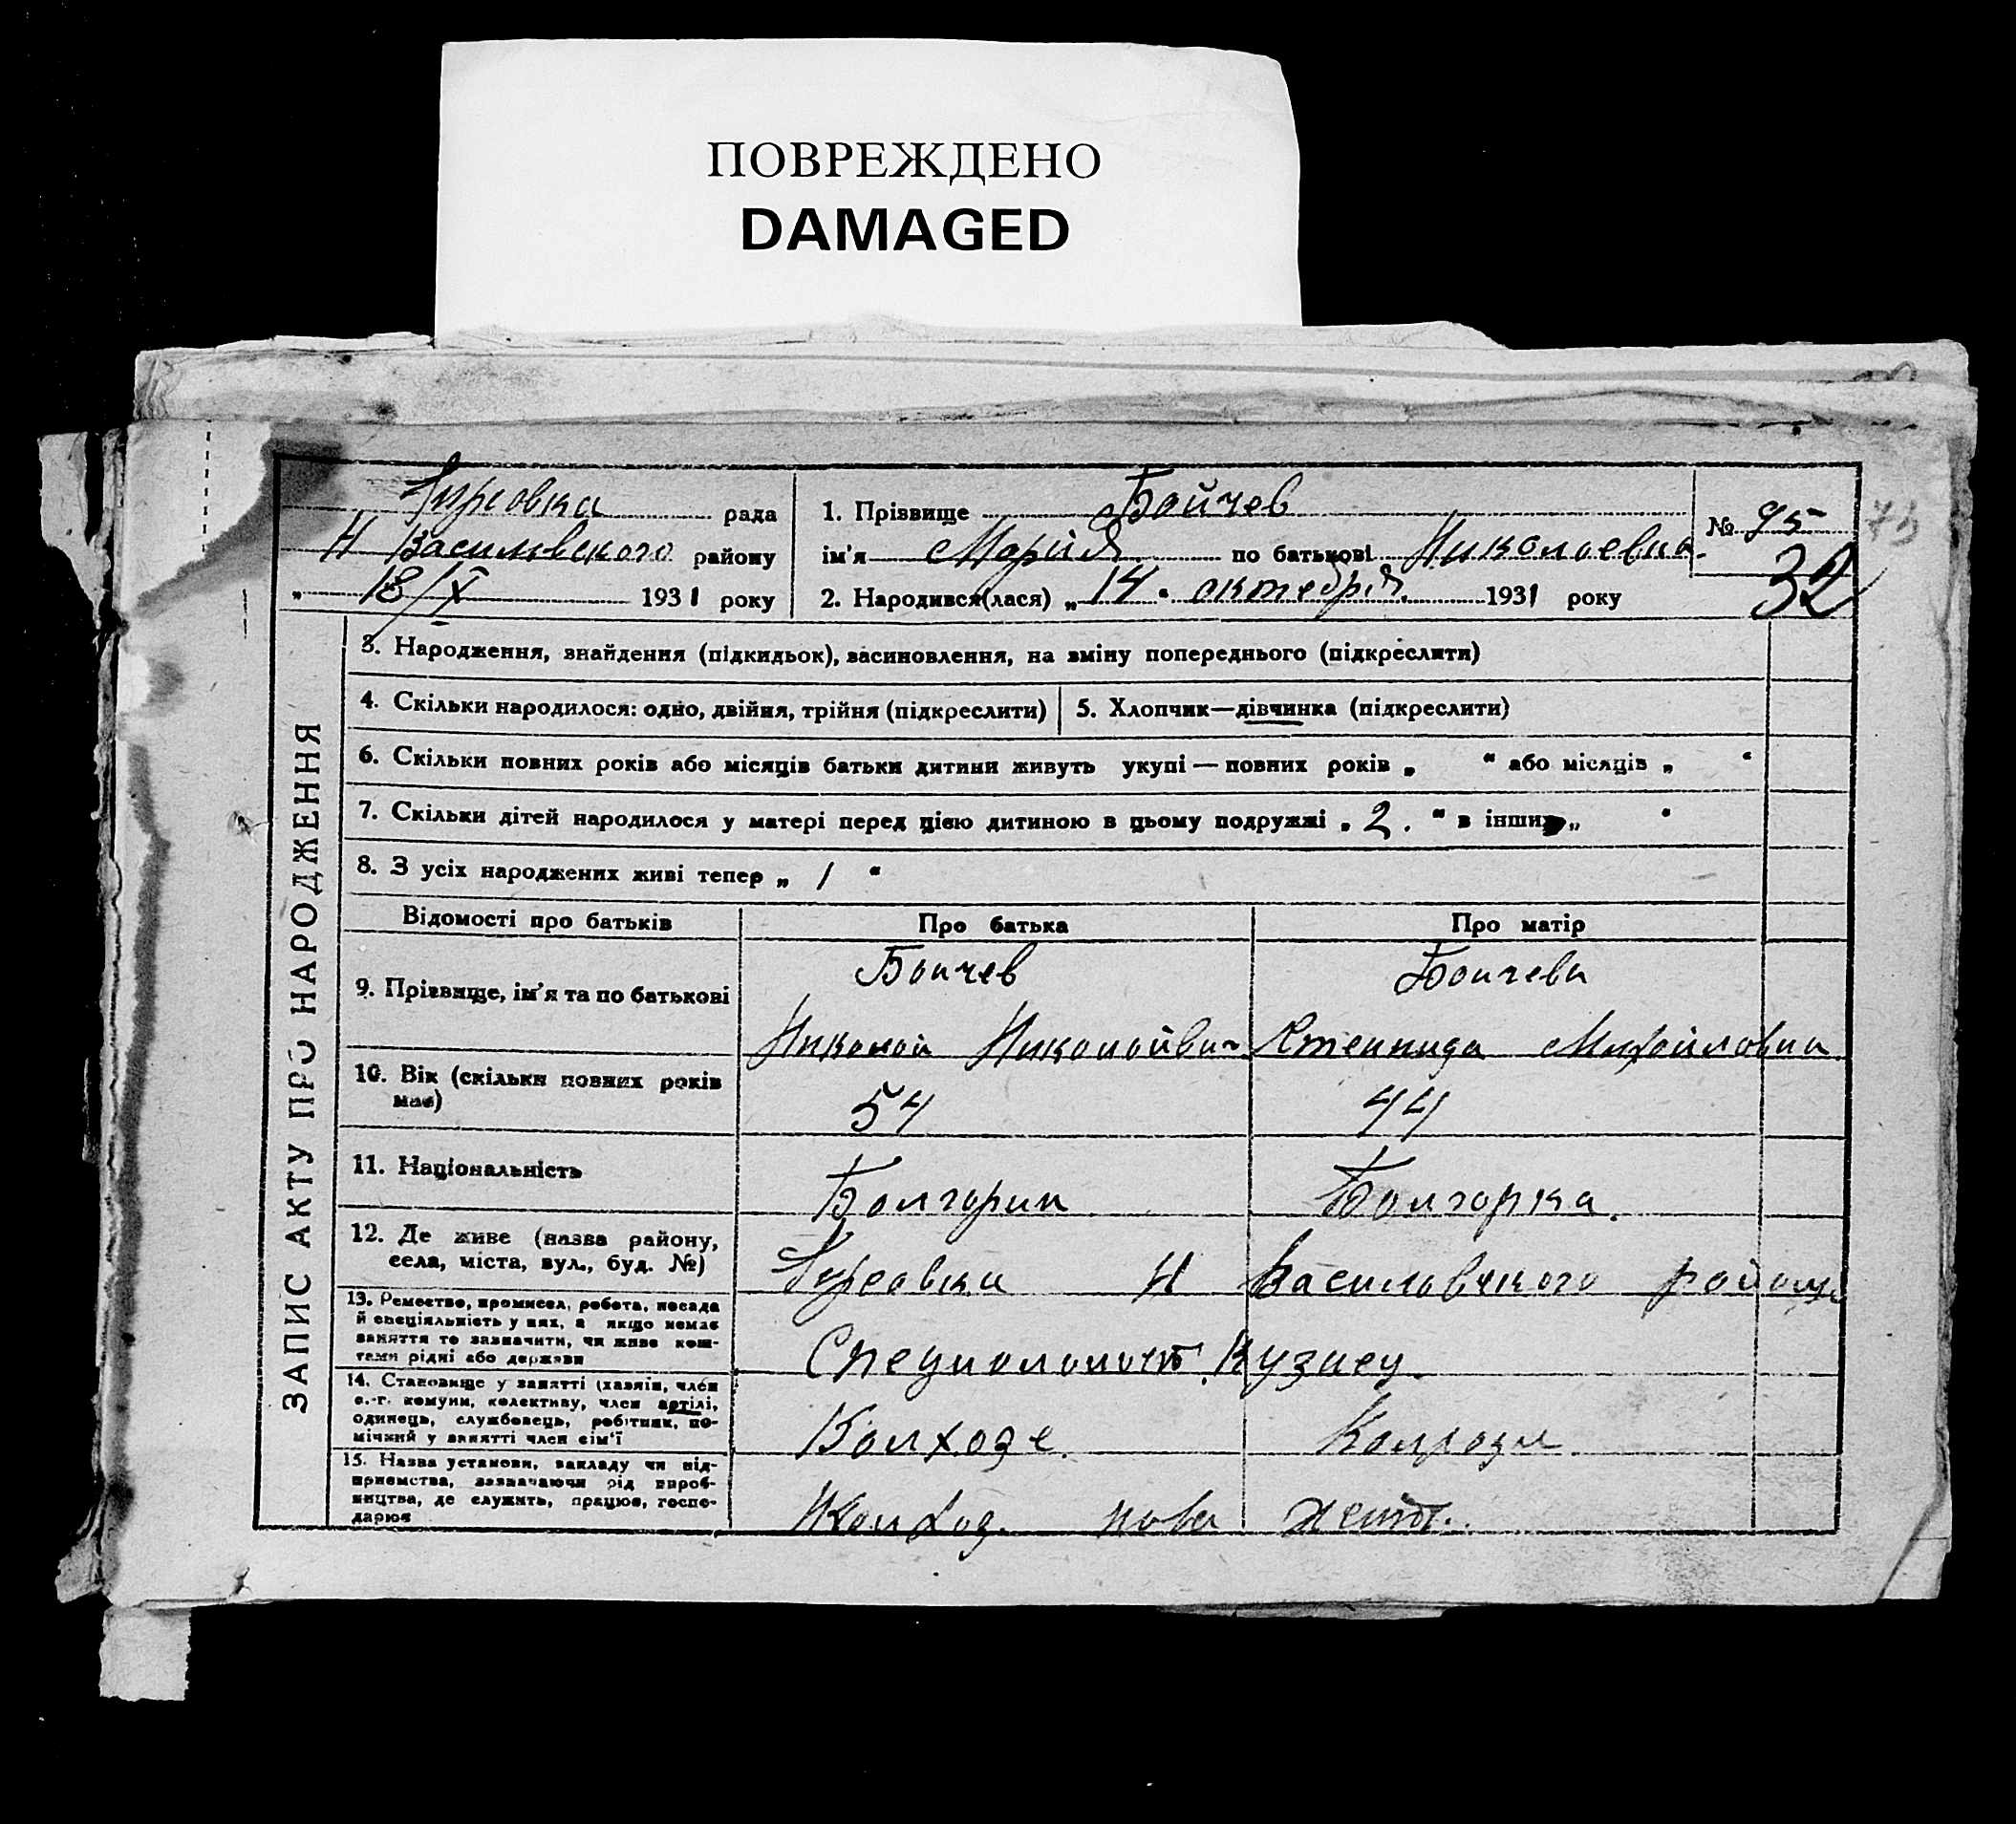 ПОВРЕЖДЕНО
DAMAGED
рада
Н Василевского району
„ 18/X 1931 року
1. Прізвище Бойчев
ім'я Марія по батькові Николаевна
2. Народився(лася) „14 " октебря 1931 року
№ 95
32
73
ЗАПИС АКТУ ПРО НАРОДЖЕННЯ
3. Народження, знайдення (підкидьок), засиновлення, на зміну попереднього (підкреслити)
4. Скільки народилося: одно, двійня, трійня (підкреслити)
5. Хлопчик—дівчинка (підкреслити)
6. Скільки повних років або місяців батьки дитини живуть укупі — повних років „ “ або місяців „ “
7. Скільки дітей народилося у матері перед цією дитиною в цьому подружжі „ 2. “ в інших „ “
8. З усіх народжених живі тепер „ 1 “
Відомості про батьків
Про батька
Про матір
9. Прізвище, ім'я та по батькові
Боичев
Николай
Боичева
Михайловна
10. Вік (скільки повних років
має)
54
44
11. Національність
Болгарин
Болгорка.
12. Де живе (назва району,
села, міста, вул., буд. №)
Н Василовского района
13. Ремество, промисел, робота, посада
й спеціяльність у них, а якщо немає
заняття то зазначити, чи живе кош-
тами рідні або держави
Кузнец.
14. Становище у занятті (хазяїн, член
с.-г. комуни, колективу, член артілі,
одинець, службовець, робітник, по-
мічний у занятті член сім'ї
Колхозе.
15. Назва установи, закладу чи під-
приємства, зазначаючи рід вироб-
ництва, де служить, працює, госпо-
дарює
Колхоз. нова